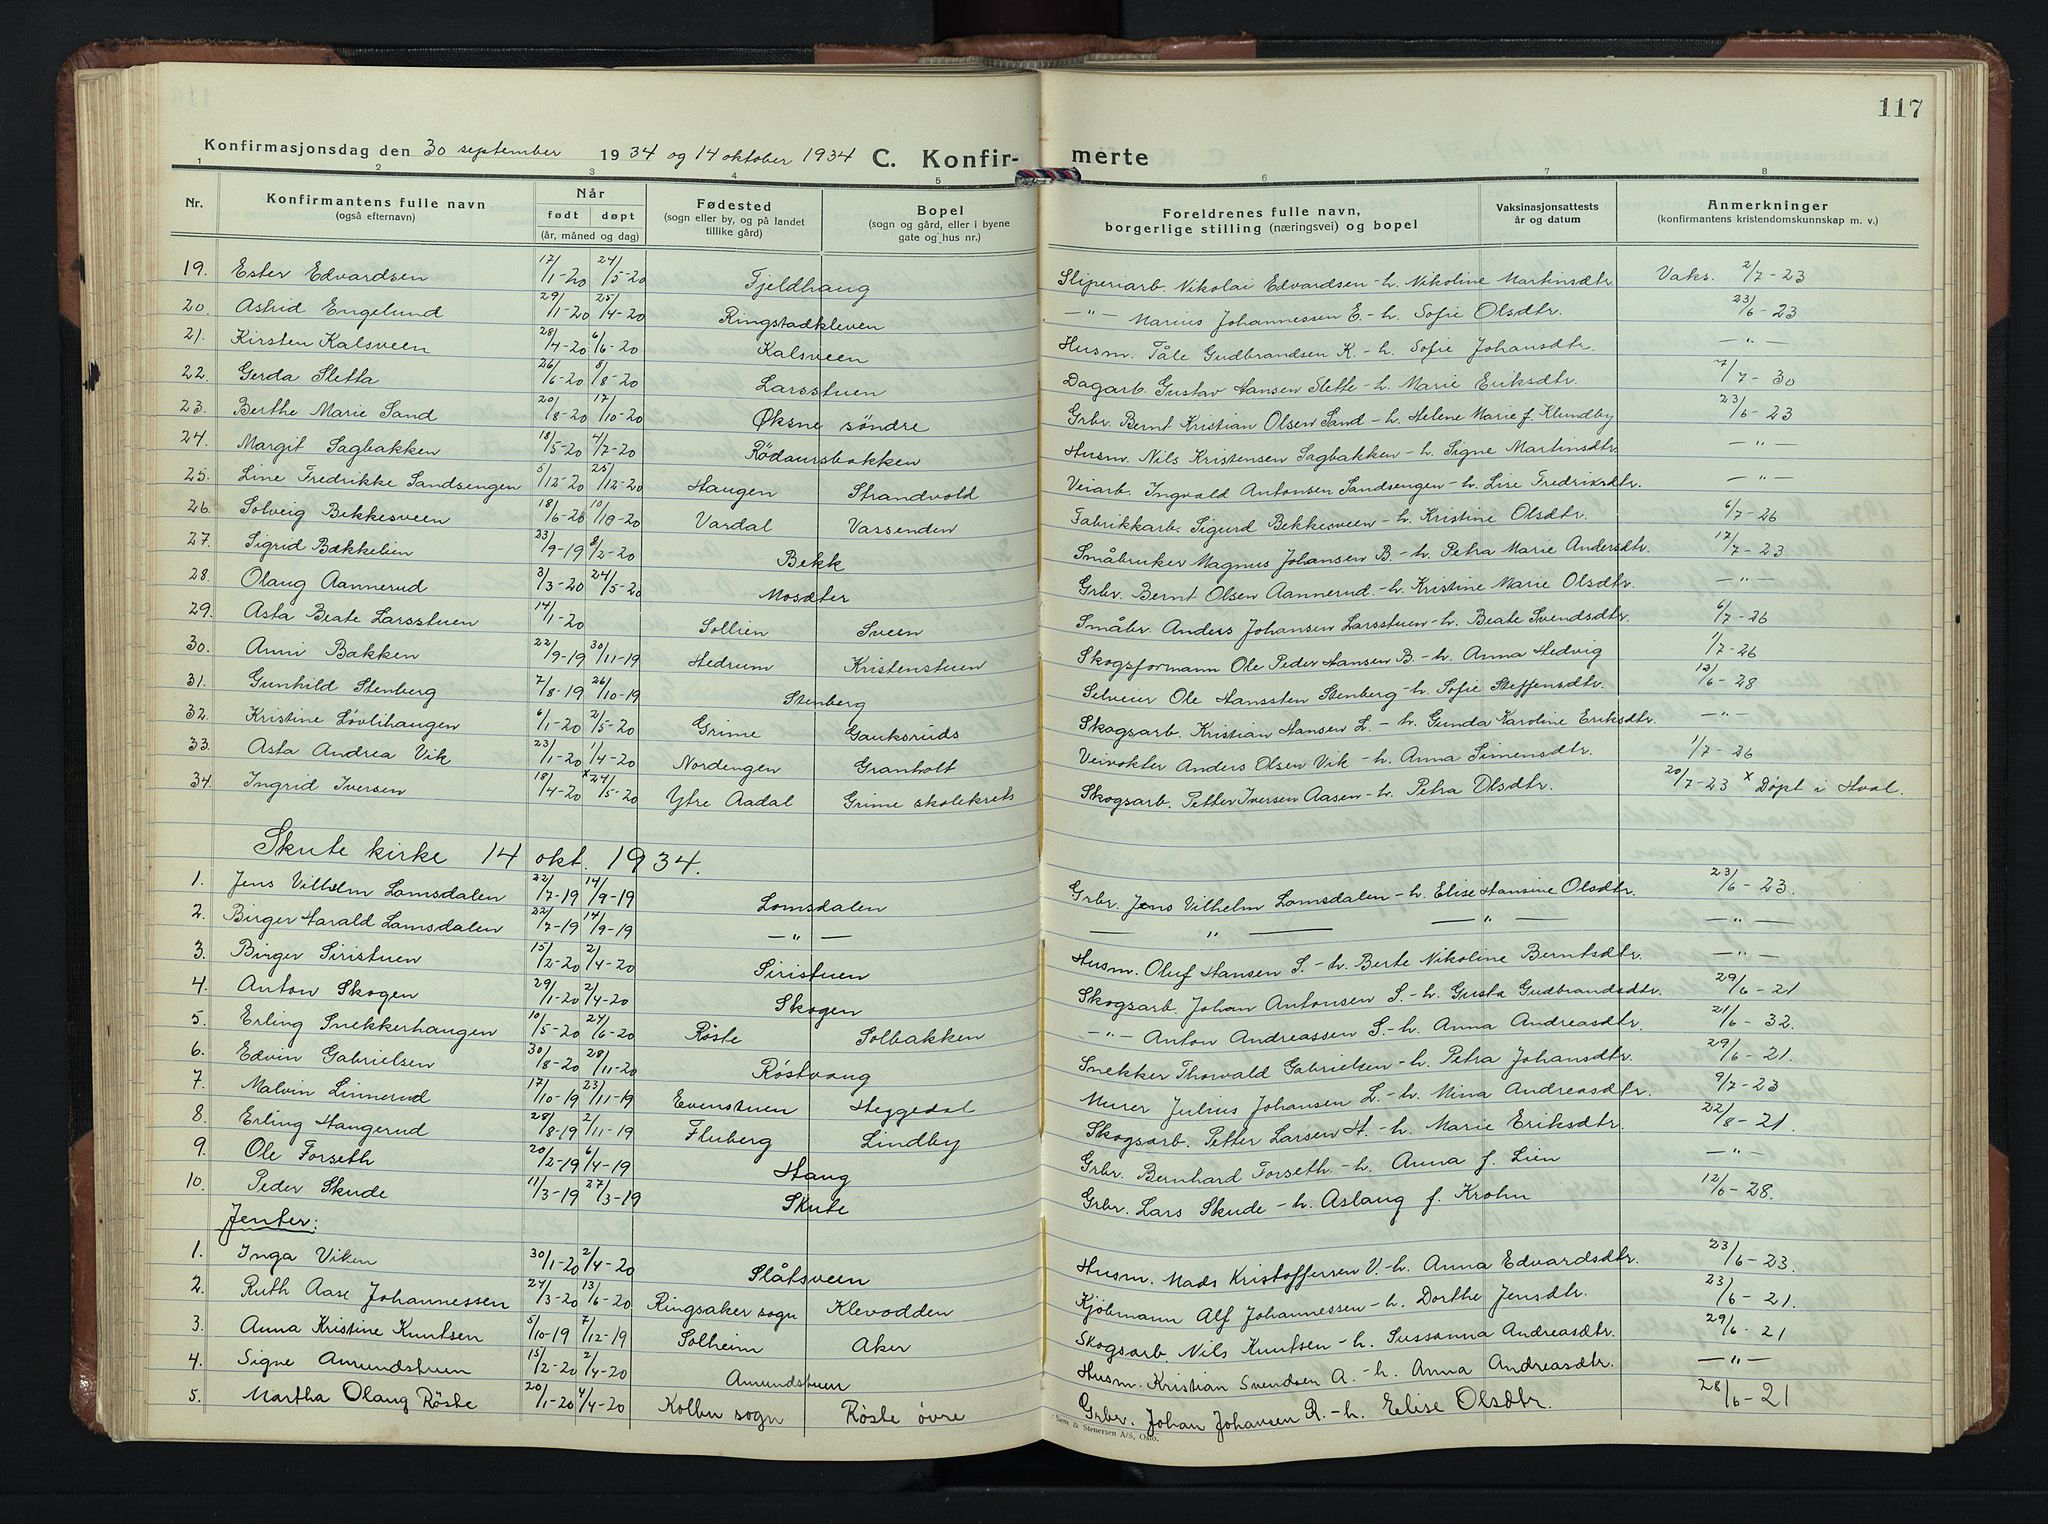 117
Konfirmasjonsdag den 30 september 1934 og 14 oktober 1934 C. Konfir- merte
1 2 3 4 5 6 7 8
Nr. Konfirmantens fulle navn (også efternavn) Når født døpt (år, måned og dag) Fødested (sogn eller by, og på landet tillike gård) Bopel (sogn og gård, eller i byene gate og hus nr.) Foreldrenes fulle navn, borgerlige stilling (næringsvei) og bopel Vaksinasjonsattests år og datum Anmerkninger (konfirmantens kristendomskunnskap m. v.)
19. Ester Edvardsen 17/1-20 24/5-20 Fjeldhaug Sliperiarb. Nikolai Edvardsen - h. Nikoline Martinsdtr. Vaks. 2/7-23
20. Astrid Engelund 29/1-20 25/4-20 Ringstadkleven —"— Marius Johannessen E. - h. Sofie Olsdtr. 23/6-23
21. Kirsten Kalsveen 28/4-20 6/6-20 Kalsveen Husm. Tåle Gudbrandsen K. - h. Sofie Johansdtr. "
22. Gerda Sletta 26/6-20 8/8-20 Larsstuen Dagarb. Gustav Hansen Slette - h. Marie Eriksdtr. 7/7-30
23. Berthe Marie Sand 20/8-20 17/10-20 Øksne søndre Grbr. Bernt Kristian Olsen Sand - h. Helene Marie f. Klundby 23/6-23
24. Margit Sagbakken 18/5-20 4/7-20 Rödaursbakken Husm. Nils Kristensen Sagbakken - h. Signe Martinsdtr. —"—
25. Line Fredrikke Sandsengen 5/12-20 25/12-20 Haugen Strandvold Veiarb. Ingvald Antonsen Sandsengen - h. Lise Fredriksdtr. —"—
26. Solveig Bekkesveen 18/6-20 10/10-20 Vardal Vassenden Fabrikkarb. Sigurd Bekkesveen - h. Kristine Olsdtr. 6/7-26
27. Sigrid Bækkelien 23/9-19 8/2-20 Bekk Småbruker Magnus Johansen B. - h. Petra Marie Andersdtr. 17/7-23
28. Olaug Aannerud 3/3-20 24/5-20 Mosæter Grbr. Bernt Olsen Aannerud. - h. Kristine Marie Olsdtr. —"—
29. Asta Beate Larsstuen 14/1-20 Sollien Sveen Småbr. Anders Johansen Larsstuen - h. Beate Svendsdtr. 6/7-26
30. Anni Bakken 22/9-19 30/11-19 Hedrum Kristenstuen Skogsformann Ole Peder Hansen B. - h. Anna Hedvig 1/7-26
31. Gunhild Stenberg 7/8-19 26/10-19 Stenberg Selveier Ole Hanssten Stenberg - h. Sofie Steffensdtr. 12/6-28
32. Kristine Løvlihaugen 6/1-20 2/5-20 Grime Gauksruds Skogsarb. Kristian Hansen L. - h. Gunda Karoline Eriksdtr. —"—
33. Asta Andrea Vik 23/1-20 1/4-20 Nordengen Granholt Veivokter Anders Olsen Vik - h. Anna Simensdtr. 1/7-26
34. Ingrid Iversen 18/4-20 x 24/5-20 Ytre Aadal Grime skolekrets Skogsarb. Petter Iversen Aasen - h. Petra Olsdtr. 20/7-23 x Døpt i Hval.
Skute kirke 14 okt. 1934.
1. Jens Vilhelm Lomsdalen 22/7-19 14/9-19 Lomsdalen Grbr. Jens Vilhelm Lomsdalen - h. Elise Hansine Olsdtr. 23/6-23.
2. Birger Harald Lomsdalen 22/7-19 14/9-19 —"— —"— —"— —"—
3. Birger Siristuen 15/2-20 2/4-20 Siristuen Husm. Oluf Hansen S. - h. Berte Nikoline Berntsdtr. —"—
4. Anton Skogen 29/1-20 2/4-20 Skogen Skogsarb. Johan Antonsen S. - h. Gusta Gudbrandsdtr. 29/6-21
5. Erling Snekkerhaugen 10/5-20 24/6-20 Røste Solbakken —"— Anton Andreassen S. - h. Anna Andreasdtr. 21/6-32.
6. Edvin Gabrielsen 30/8-20 28/11-20 Røstvang Snekker Thorvald Gabrielsen - h. Petra Johansdtr. 29/6-21.
7. Malvin Linnerud 17/10-19 23/11-19 Evenstuen Heggedal Murer Julius Johansen L. - h. Mina Andreasdtr. 9/7-23
8. Erling Haugerud 28/8-19 2/11-19 Fluberg Lindby Skogsarb. Petter Larsen H. - h. Marie Eriksdtr. 22/8-21.
9. Ole Forseth 20/2-19 6/4-19 Haug Grbr. Bernhard Forseth. - h. Anna f. Lien —"—
10. Peder Skude 11/3-19 27/3-19 Skute Grbr. Lars Skude - h. Aslaug f. Krohn 12/6-28.
Jenter:
1. Inga Viken 30/1-20 2/4-20 Slåtsveen Husm. Mads Kristoffersen V. - h. Anna Edvardsdtr. 23/6-23.
2. Ruth Aase Johannessen 24/3-20 13/6-20 Ringsaker sogn Klevodden Kjøbmann Alf Johannessen - h. Dorthe Jensdtr. 23/6-21.
3. Anna Kristine Knutsen 5/10-19 7/12-19 Solheim Aker Skogsarb. Nils Knutsen - h. Sussanna Andreasdtr. 29/6-21
4. Signe Amundstuen 15/2-20 2/4-20 Amundstuen Husm. Kristian Svendsen A. - h. Anna Andreasdtr. —"—
5. Martha Olaug Röste 20/1-20 4/4-20 Kolbu sogn Røste øvre Grbr. Johan Johansen R. - h. Elise Olsdtr. 28/6-21
Sem & Stenersen A/S, Oslo.